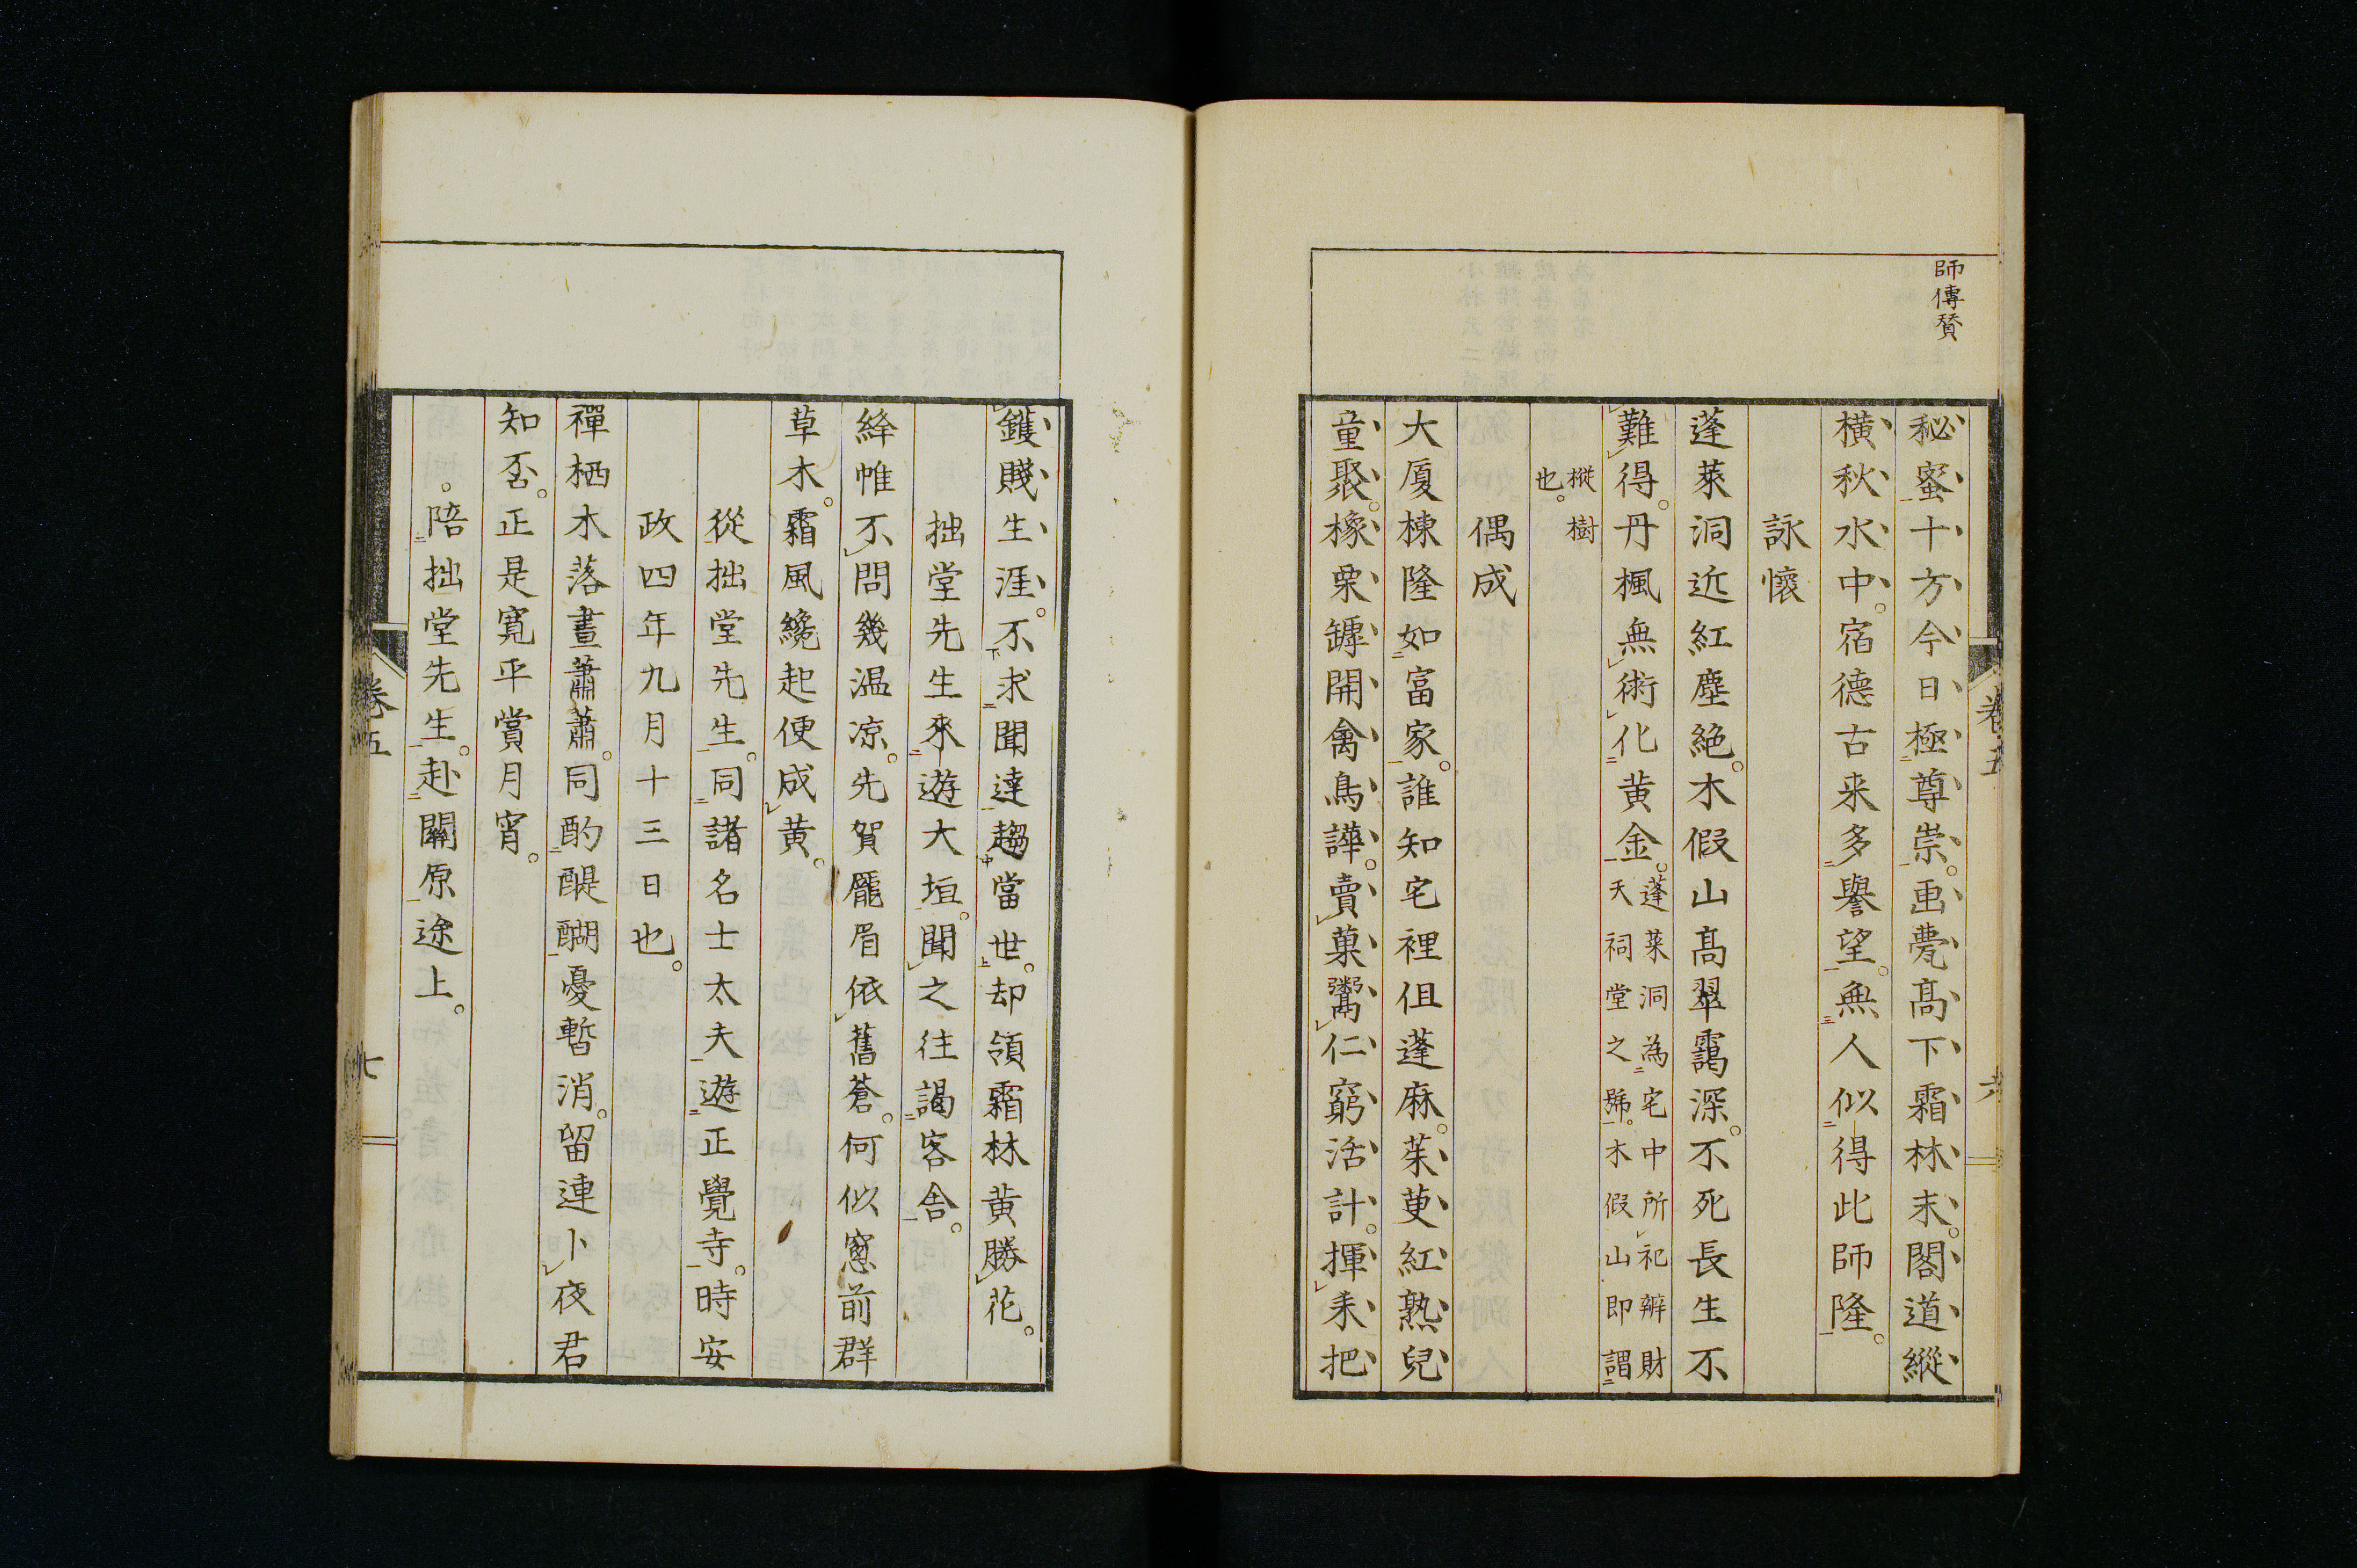 師傳賛
秘蜜十方今日極尊崇。画甍高下霜林末。閣道縱
橫秋水中。宿德古来多譽望。無人似得此師隆。
詠懷
蓬萊洞近紅塵絶。木假山高翠靄深。不死長生不
難得。丹楓無術化黄金。
蓬萊洞為宅中所祀辨財
天祠堂之號。木假山即謂
樅樹
也。
偶成
大厦棟隆如富家。誰知宅裡伹蓬麻。茱萸紅熟兒
童聚。橡栗罅開禽鳥譁。賣菓鬻仁窮活計。揮耒把
卷五
六
钁賤生涯。不求聞達趨當世。却領霜林黄勝花。
拙堂先生來遊大垣。聞之往謁客舎。
絳帷不問幾温凉。先賀龐眉依舊蒼。何似窓前群
草木。霜風纔起便成黄。
從拙堂先生。同諸名士太夫遊正覺寺。時安
政四年九月十三日也。
禪栖木落晝蕭蕭。同酌醍醐憂暫消。留連卜夜君
知否。正是寛平賞月宵。
陪拙堂先生。赴關原途上。
卷五
七